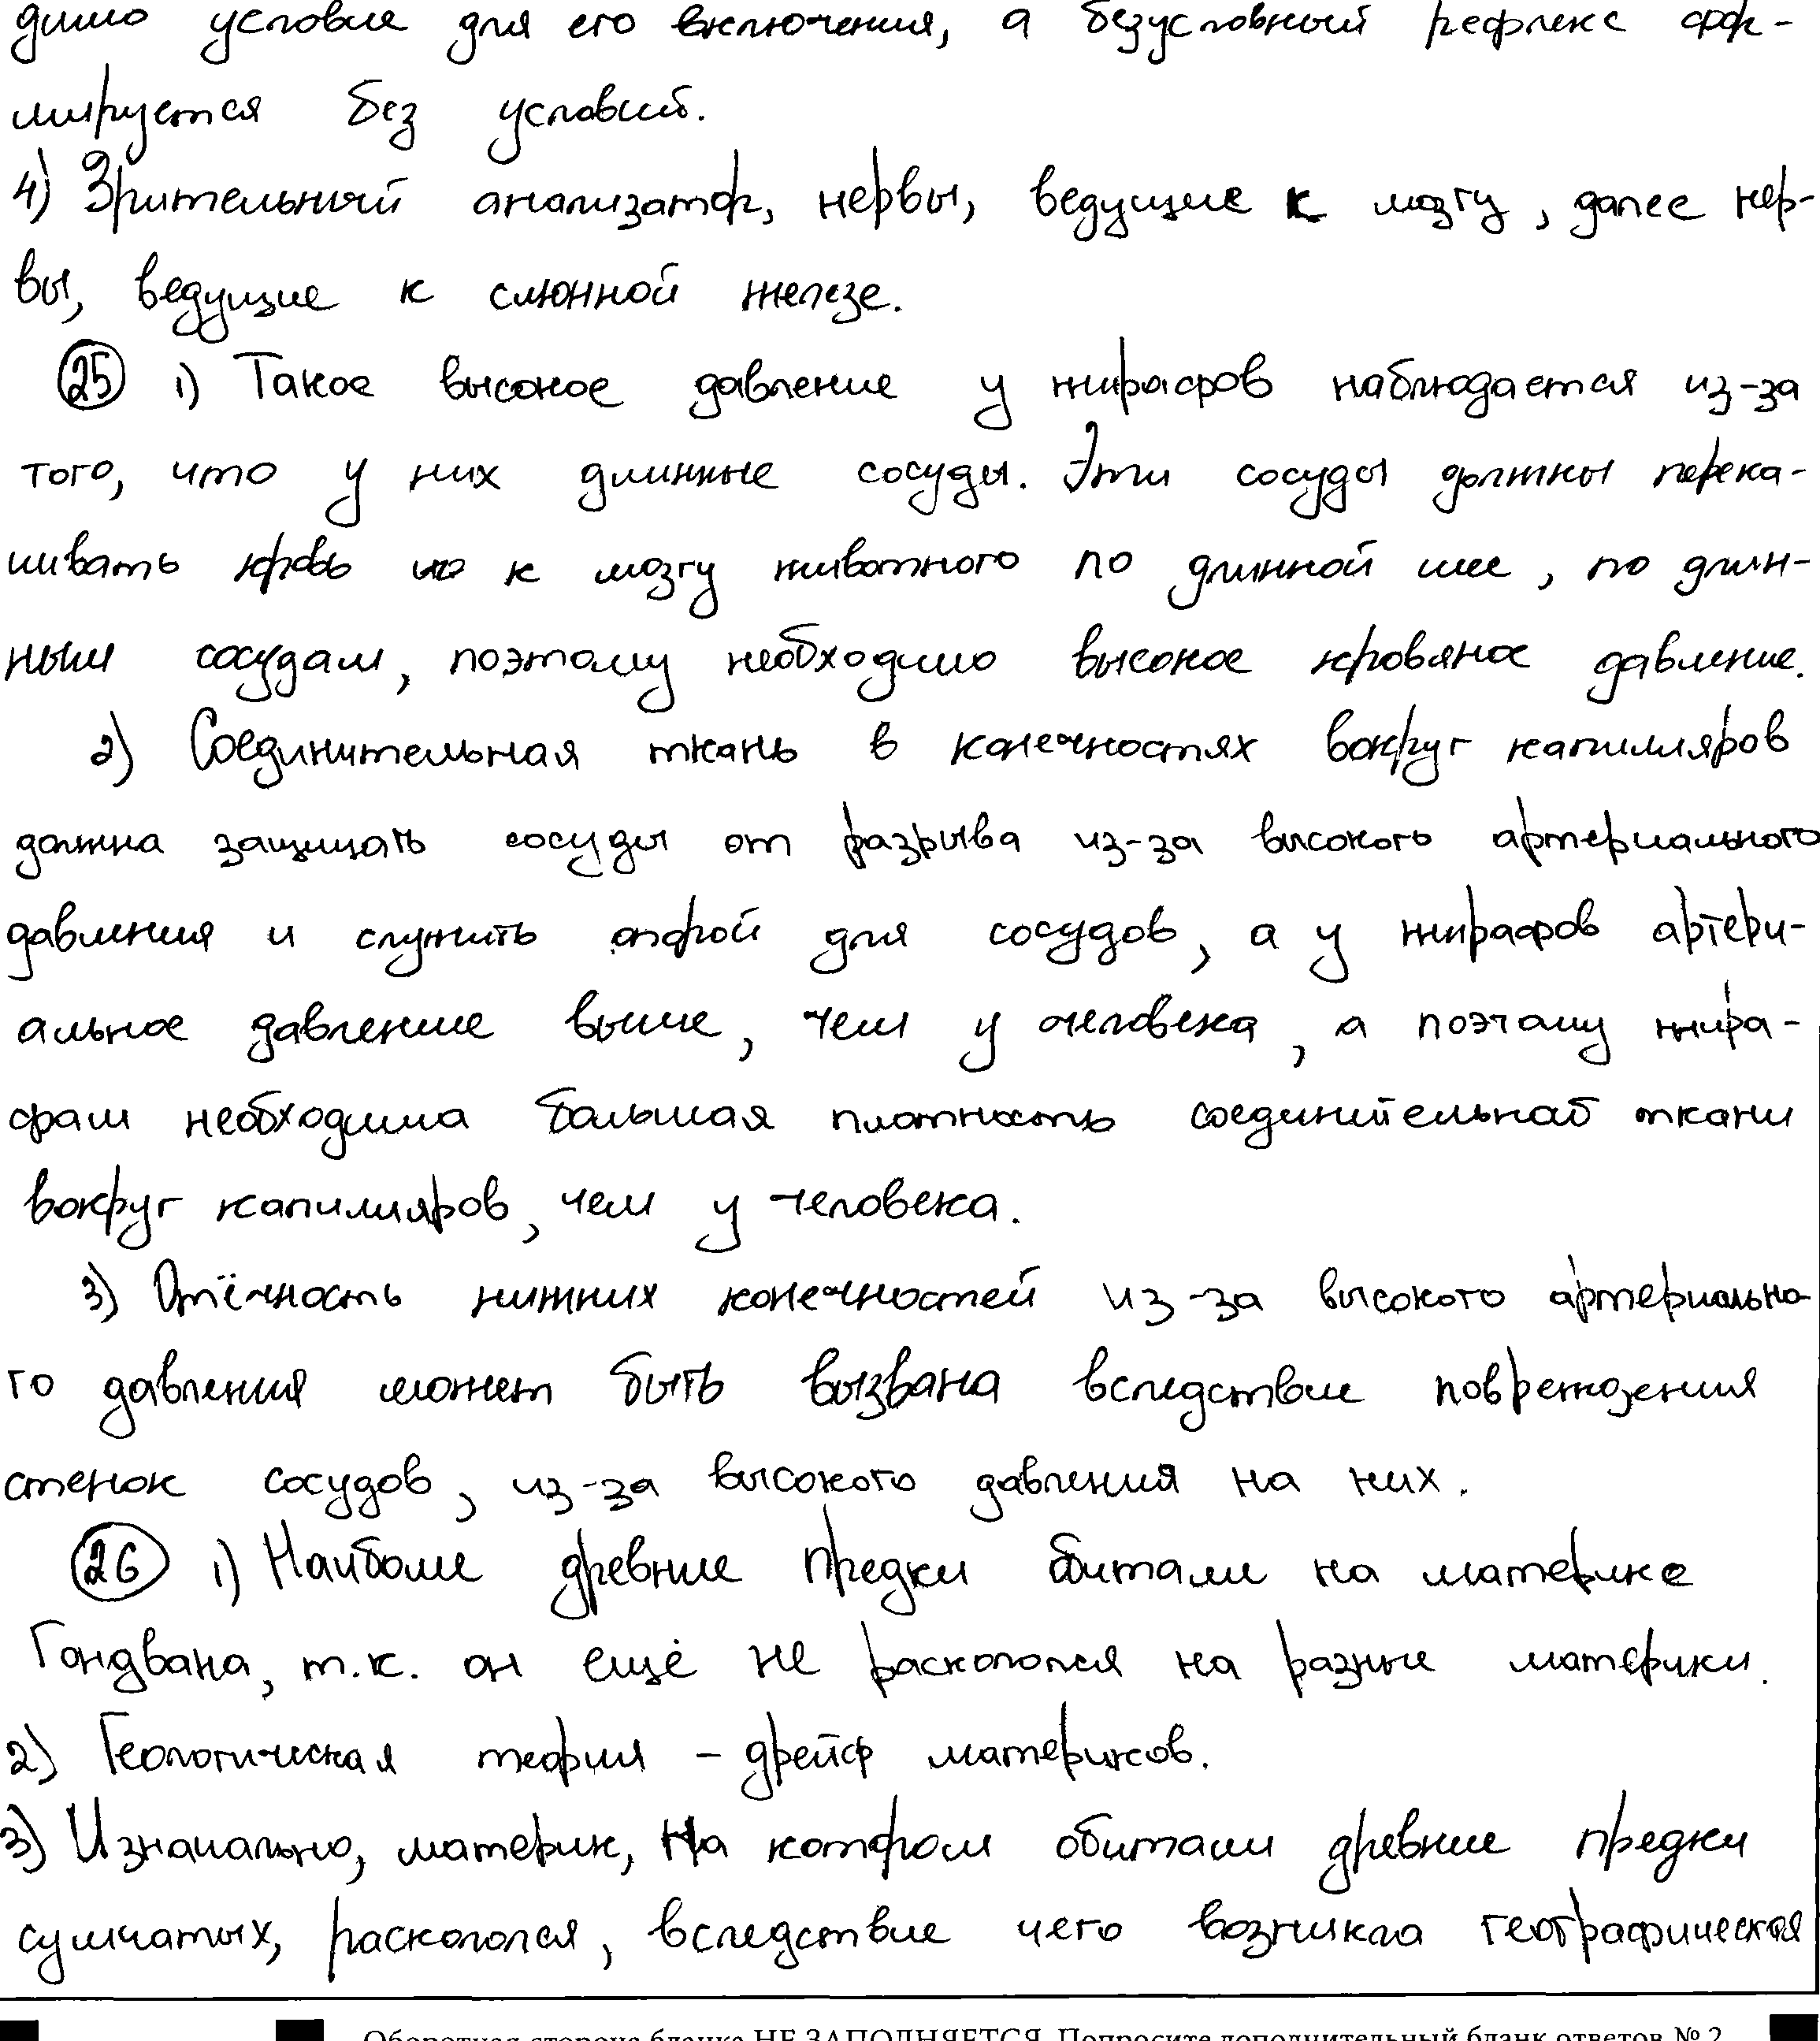 димо условие для его включения, а безусловный рефлекс фор-
мируется без условий.
4) Зрительный анализатор, нервы, ведущие к мозгу, далее нер-
вы, ведущие к слюнной железе.
25 1) Такое высокое давление у жирафов наблюдается из-за
того, что у них длинные сосуды. Эти сосуды должны перека-
чивать кровь к мозгу животного по длинной шее, по длин-
ным сосудам, поэтому необходимо высокое кровяное давление.
2) Соединительная ткань в конечностях вокруг капилляров
должна защищать сосуды от разрыва из-за высокого артериального
давления и служить опорой для сосудов, а у жирафов артери-
альное давление выше, чем у человека, а поэтому жира-
фам необходима большая плотность соединительной ткани
вокруг капилляров, чем у человека.
3) Отёчность нижних конечностей из-за высокого артериально-
го давления может быть вызвана вследствие повреждения
стенок сосудов, из-за высокого давления на них.
26 1) Наиболее древние предки обитали на материке
Гондвана, т.к. он ещё не раскололся на разные материки.
2) Геологическая теория – дрейф материков.
3) Изначально, материк, на котором обитали древние предки
сумчатых, раскололся, вследствие чего возникла географическая
Оборотная сторона бланка НЕ ЗАПОЛНЯЕТСЯ. Попросите дополнительный бланк ответов № 2